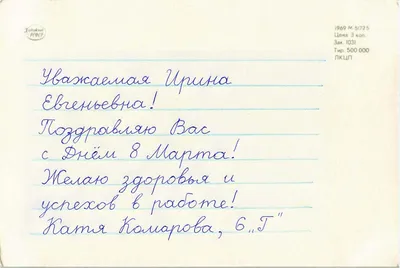 1989 РК 5/73 б
Цена 3 коп.
Зак. 1031
Тир. 500 000
ЛКЦП
Уважаемая Ирина
Евгеньевна!
Поздравляю Вас
с Днём 8 Марта!
Желаю здоровья и
успехов в работе!
Катя Комарова, 6 „Г"